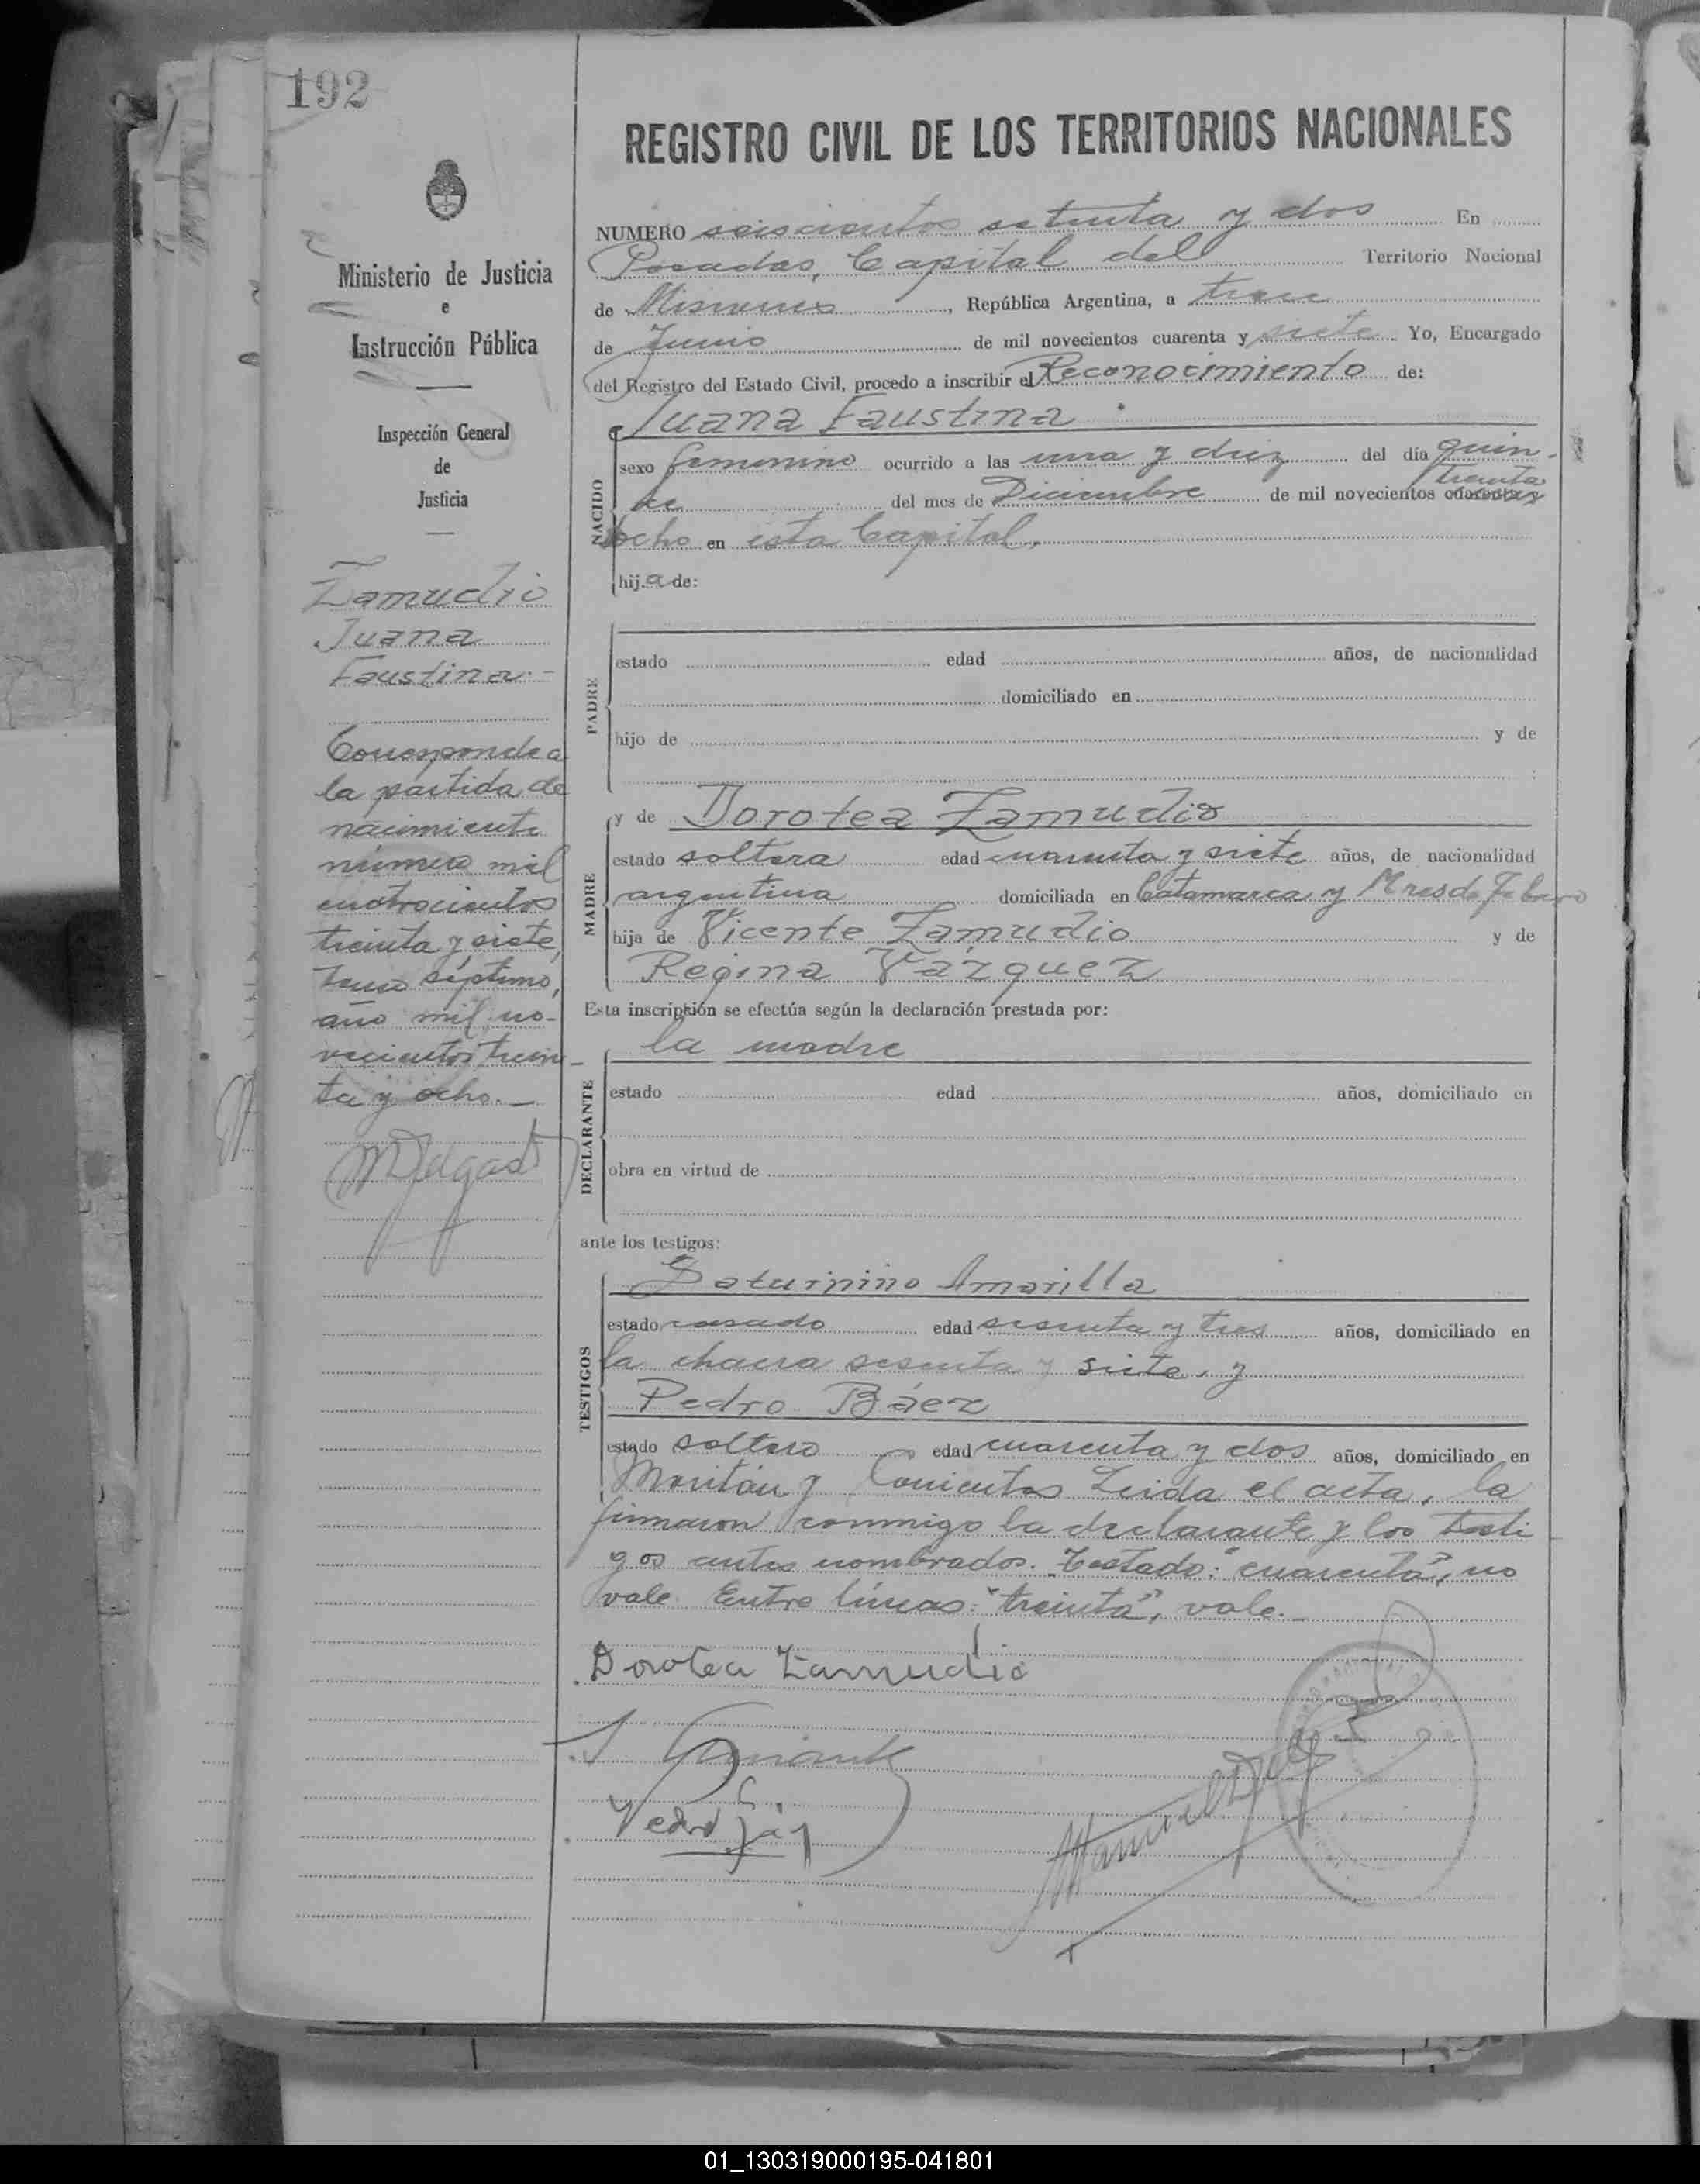 192
Ministerio de Justicia
e
Instrucción Pública
Inspección General
de
Justicia
Zamudio
Juana
Faustina.-
Corresponde a
la partida de
nacimiento
número mil
cuatrocientos
treinta y siete,
tomo séptimo,
año mil no-
vecientos trein-
ta y ocho.-
REGISTRO CIVIL DE LOS TERRITORIOS NACIONALES
NUMERO seiscientos setenta y dos En
Posadas, Capital del Territorio Nacional
de Misiones, República Argentina, a trece
de Junio de mil novecientos cuarenta y siete. Yo, Encargado
del Registro del Estado Civil, procedo a inscribir el Reconocimiento de:
Juana Faustina
NACIDO
sexo femenino ocurrido a las una y diez del día quin-
treinta
ce del mes de Diciembre de mil novecientos cuarenta y
ocho en esta Capital,
hija de:
PADRE
estado edad años, de nacionalidad
domiciliado en
hijo de y de
MADRE
y de Dorotea Zamudio
estado soltera edad cuarenta y siete años, de nacionalidad
argentina domiciliada en Catamarca y Mres de Febrero
hija de Vicente Zamudio y de
Regina Vázquez
Esta inscripción se efectúa según la declaración prestada por:
la madre
DECLARANTE
estado edad años, domiciliado en
obra en virtud de
ante los testigos:
TESTIGOS
Saturnino Amarilla
estado casado edad sesenta y tres años, domiciliado en
la chacra sesenta y siete, y
Pedro Báez
estado soltero edad cuarenta y dos años, domiciliado en
y Corrientes Leida el acta, la
firmaron conmigo la declarante y los testi
gos antes nombrados. Testado: "cuarenta", no
vale Entre líneas: "treinta", vale.-
Dorotea Zamudio
Pedro
Manuel
01_130319000195-041801